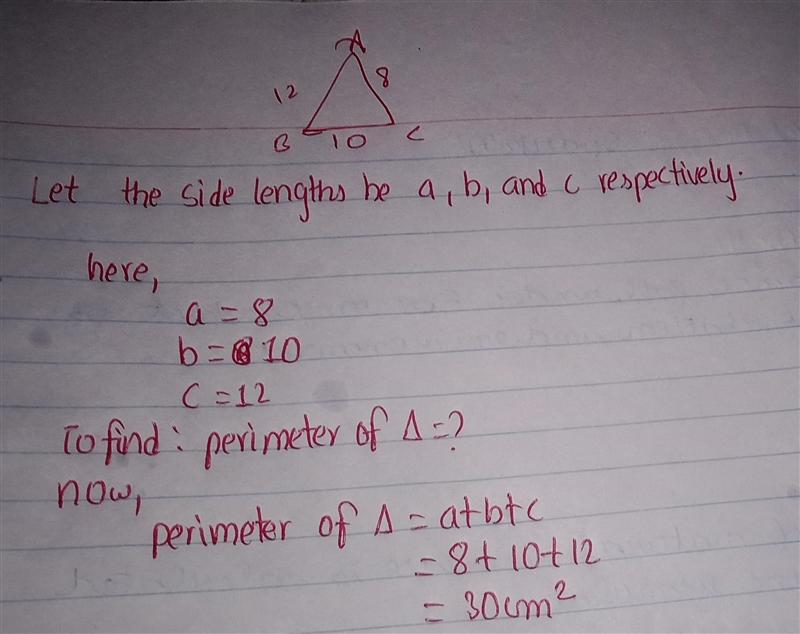 A
12 8
B 10 C
Let the side lengths be a, b, and c respectively.
here,
a = 8
b = 10
c = 12
To find : perimeter of Δ = ?
now,
perimeter of Δ = a+b+c
= 8 + 10 + 12
= 30 cm²